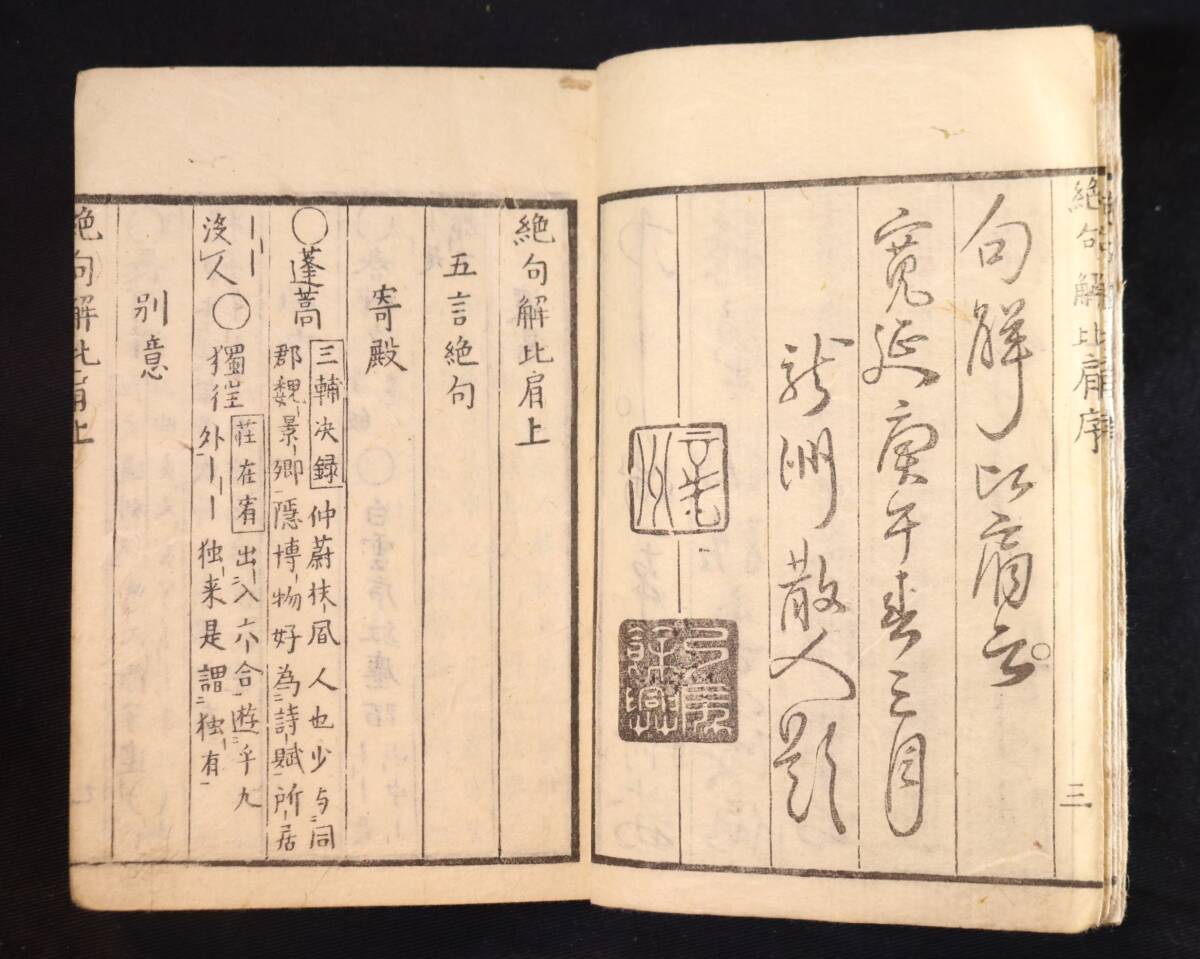 絶句解比肩序
三
句解比肩云
寛延庚午春三月
龍洲散人題
絶句解比肩上
五言絶句
寄殿
〇蓬蒿
三輔決録仲蔚扶風人也少与同
郡魏景卿隠博物好為詩賦所居
没人〇獨往
荘在宥出入六合遊乎九
外独来是謂独有
別意
絶句解比肩上